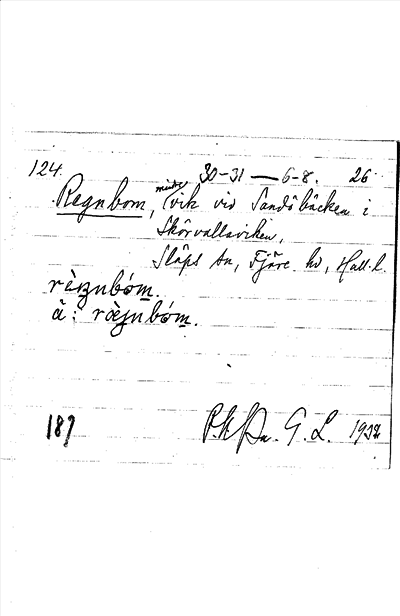 124. 30-31 — 6-8. 26
Regnbom, mindre vik vid Sandöbäcken i
Skörvallaviken,
Släps sn, Fjäre hd, Hall. l.
rèŋnbóm.
ä: ræ̀jnbóm.
189 G. L. 1932